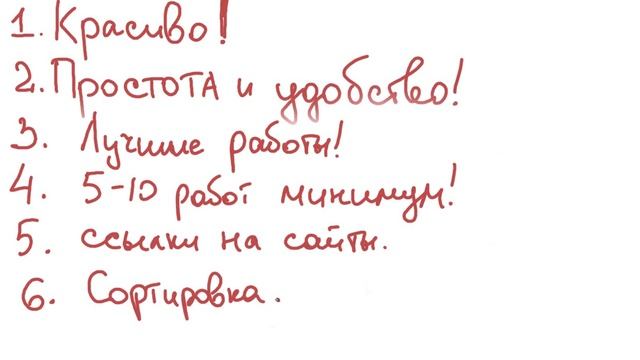 1. Красиво!
2. Простота и удобство!
3. Лучшие работы!
4. 5-10 работ минимум!
5. ссылки на сайты.
6. Сортировка.